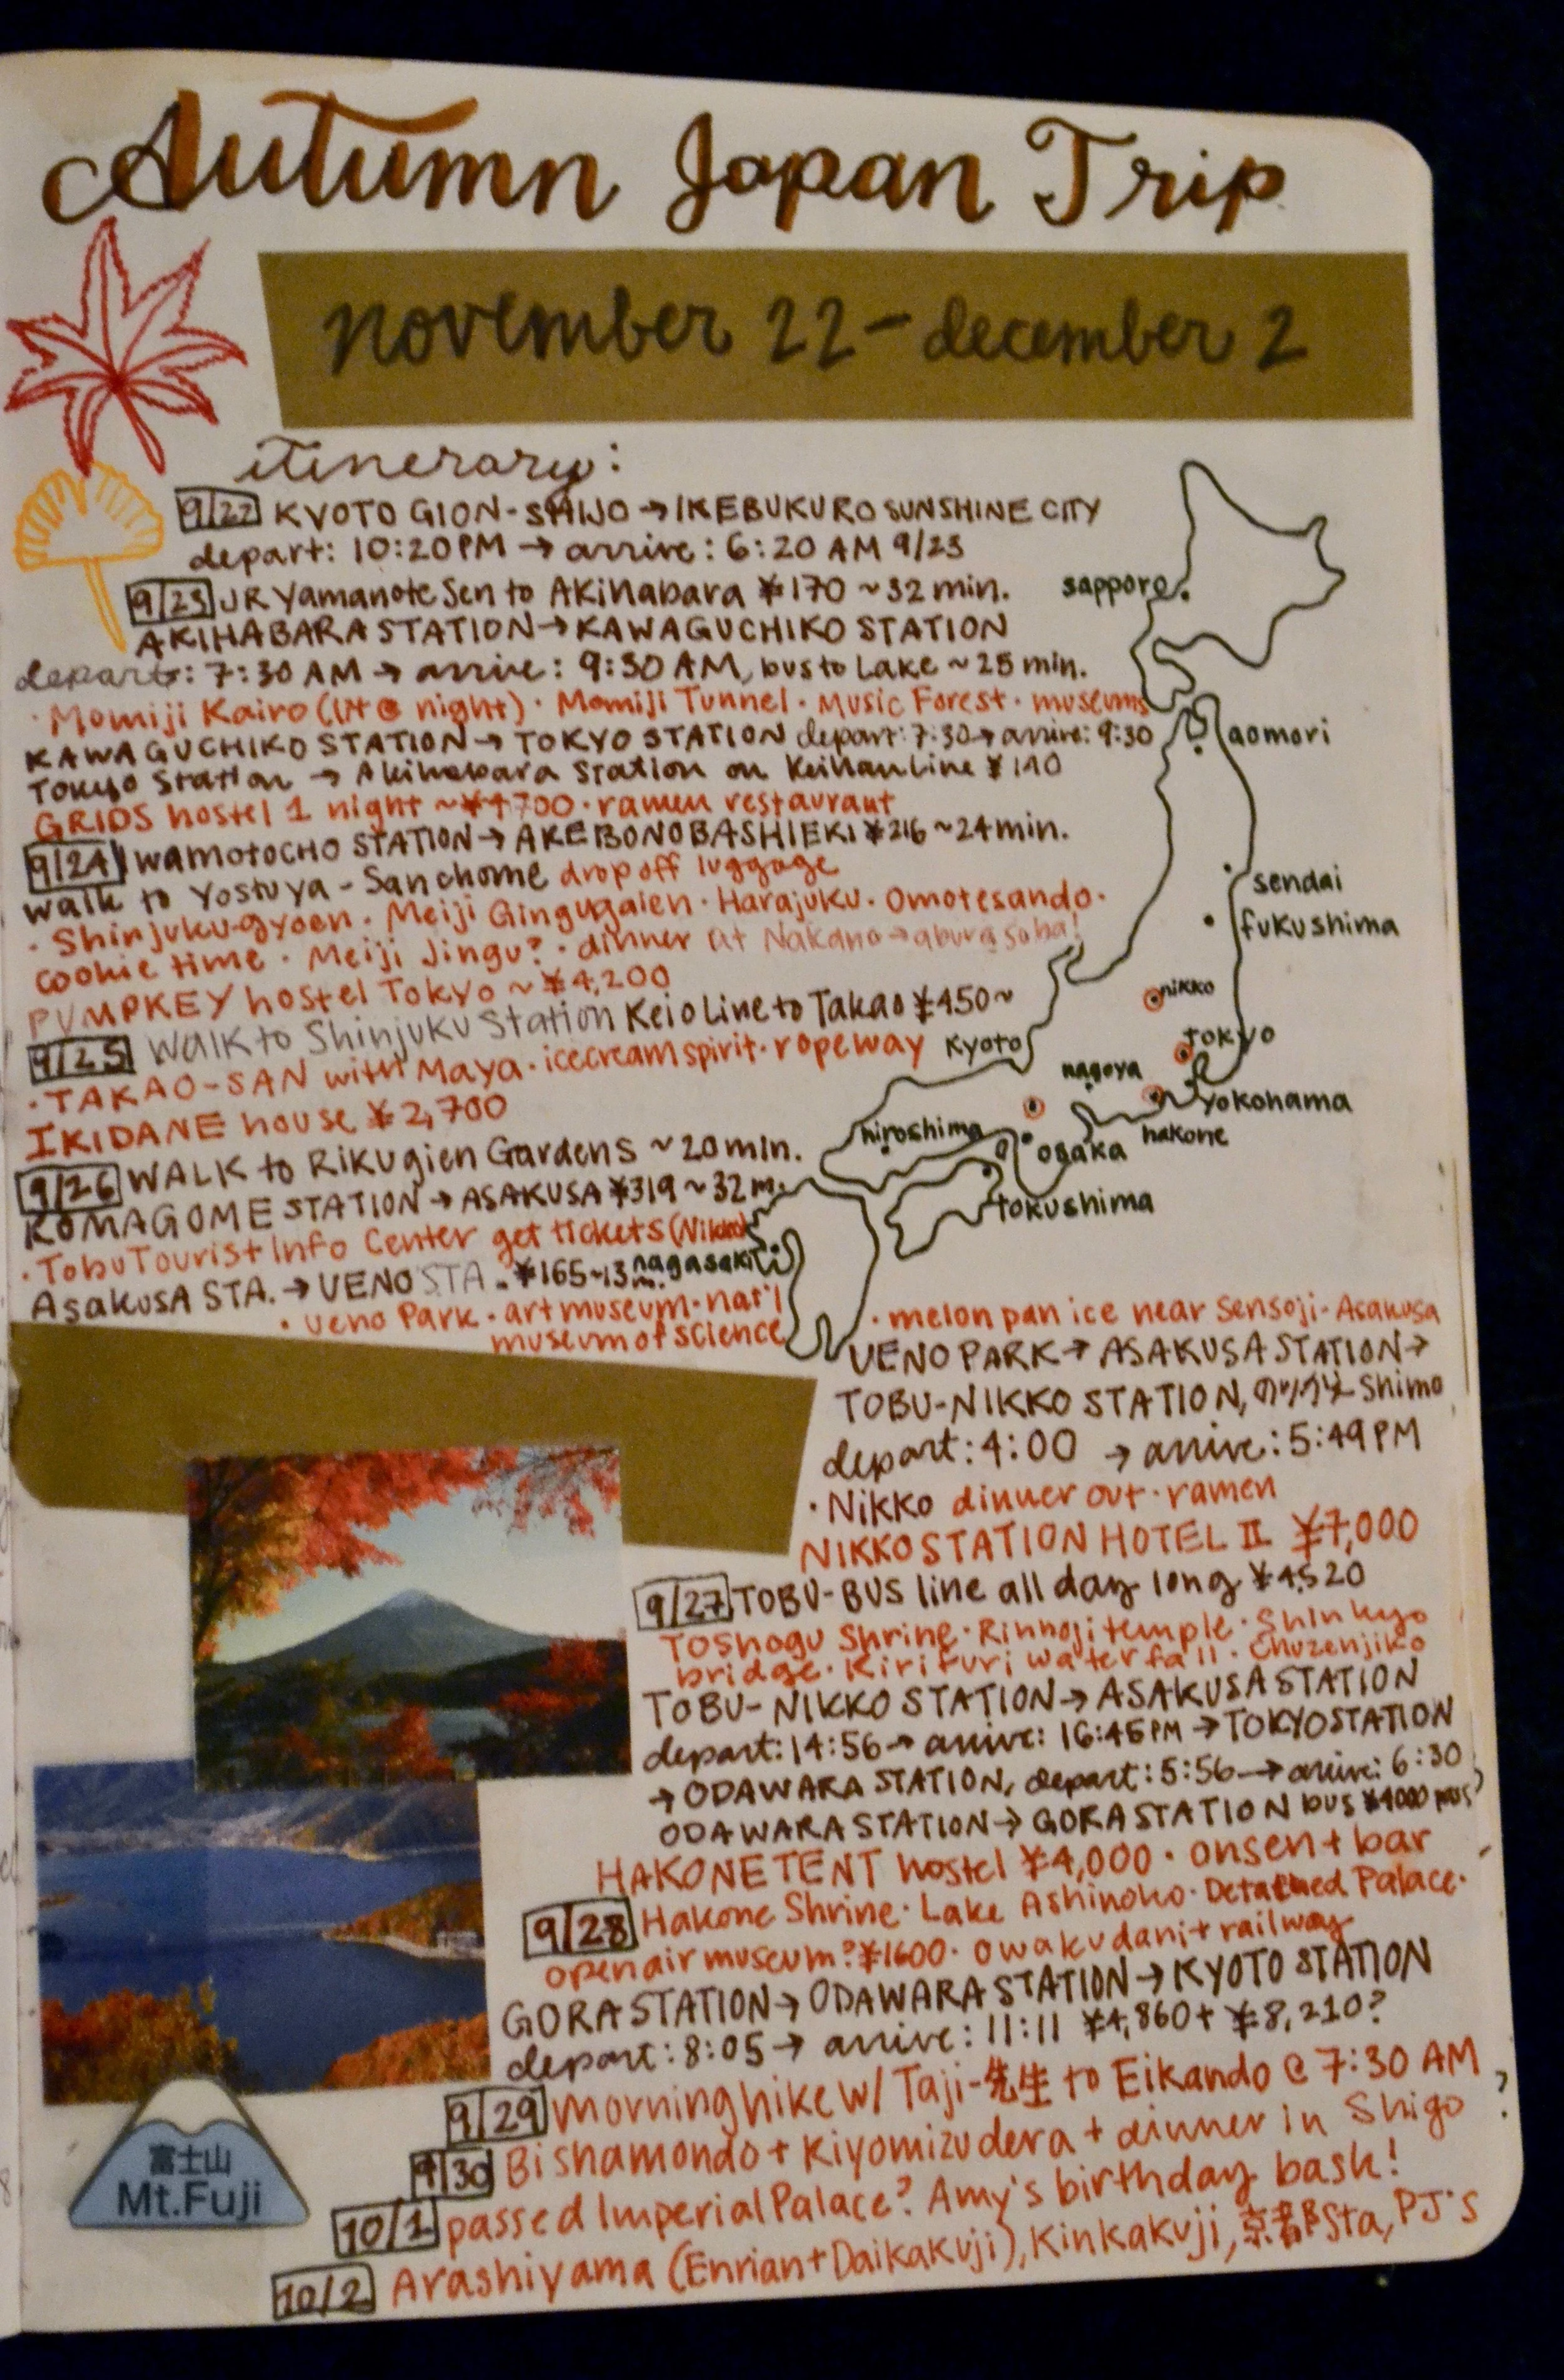 Autumn Japan Trip
november 22 - december 2
itinerary:
9/22 KYOTO GION-SHIJO → IKEBUKURO SUNSHINE CITY
depart: 10:20PM → arrive: 6:20 AM 9/23
9/23 JR Yamanote Sen to Akihabara ¥170 ~32 min.
AKIHABARA STATION → KAWAGUCHIKO STATION
depart: 7:30 AM → arrive: 9:30 AM, bus to Lake ~25 min.
· Momiji Kairo (lit @ night) · Momiji Tunnel · Music Forest · museums
KAWAGUCHIKO STATION → TOKYO STATION depart: 7:30 → arrive: 9:30
Tokyo Station → Akihabara Station on Keihan Line ¥140
GRIDS hostel 1 night ~¥4700 · ramen restaurant
9/24 WAMOTOCHO STATION → AKEBONOBASHIEKI ¥216 ~24 min.
walk to Yostuya-Sanchome drop off luggage
· Shinjuku-gyoen · Meiji Gingugaien · Harajuku · Omotesando ·
cookie time · Meiji Jingu? · dinner at Nakano → abura soba!
PUMPKEY hostel Tokyo ~ ¥4,200
9/25 Walk to Shinjuku Station Keio line to Takao ¥450~
· TAKAO-SAN with Maya · icecream spirit · ropeway
IKIDANE house ¥2,700
9/26 WALK to Rikugien Gardens ~20 min.
KOMAGOME STATION → ASAKUSA ¥319 ~32 m.
· Tobu Tourist Info Center get tickets (Nikko)
Asakusa STA. → UENO STA. ¥165 ~13 m.
· Ueno Park · art museum · nat'l
museum of science
sapporo
aomori
sendai
fukushima
nikko
tokyo
kyoto
nagoya
yokohama
hakone
hiroshima
osaka
tokushima
nagasaki
· melon pan ice near Sensoji - Asakusa
UENO PARK → ASAKUSA STATION →
TOBU-NIKKO STATION, Shimo
depart: 4:00 → arrive: 5:49 PM
· Nikko dinner out · ramen
NIKKO STATION HOTEL II ¥7,000
9/27 TOBU-BUS line all day long ¥4520
Toshogu Shrine · Rinnoji temple · Shinkyo
bridge · Kirifuri waterfall · Chuzenjiko
TOBU-NIKKO STATION → ASAKUSA STATION
depart: 14:56 → arrive: 16:45 PM → TOKYO STATION
→ ODAWARA STATION, depart: 5:56 → arrive: 6:30
ODAWARA STATION → GORA STATION bus ¥4000
HAKONE TENT hostel ¥4,000 · onsen + bar
9/28 Hakone Shrine · Lake Ashinoko · Detatched Palace ·
open air museum? ¥1600 · owakudani + railway
GORA STATION → ODAWARA STATION → KYOTO STATION
depart: 8:05 → arrive: 11:11 ¥4,860 + ¥8,210?
9/29 morning hike w/ Taji-先生 to Eikando @ 7:30 AM
9/30 Bishamondo + Kiyomizudera + dinner in Shigo ?
10/1 passed Imperial Palace? Amy's birthday bash!
10/2 Arashiyama (Enrian + Daikakuji), Kinkakuji, 京都 Sta, PJ's
富士山
Mt.Fuji